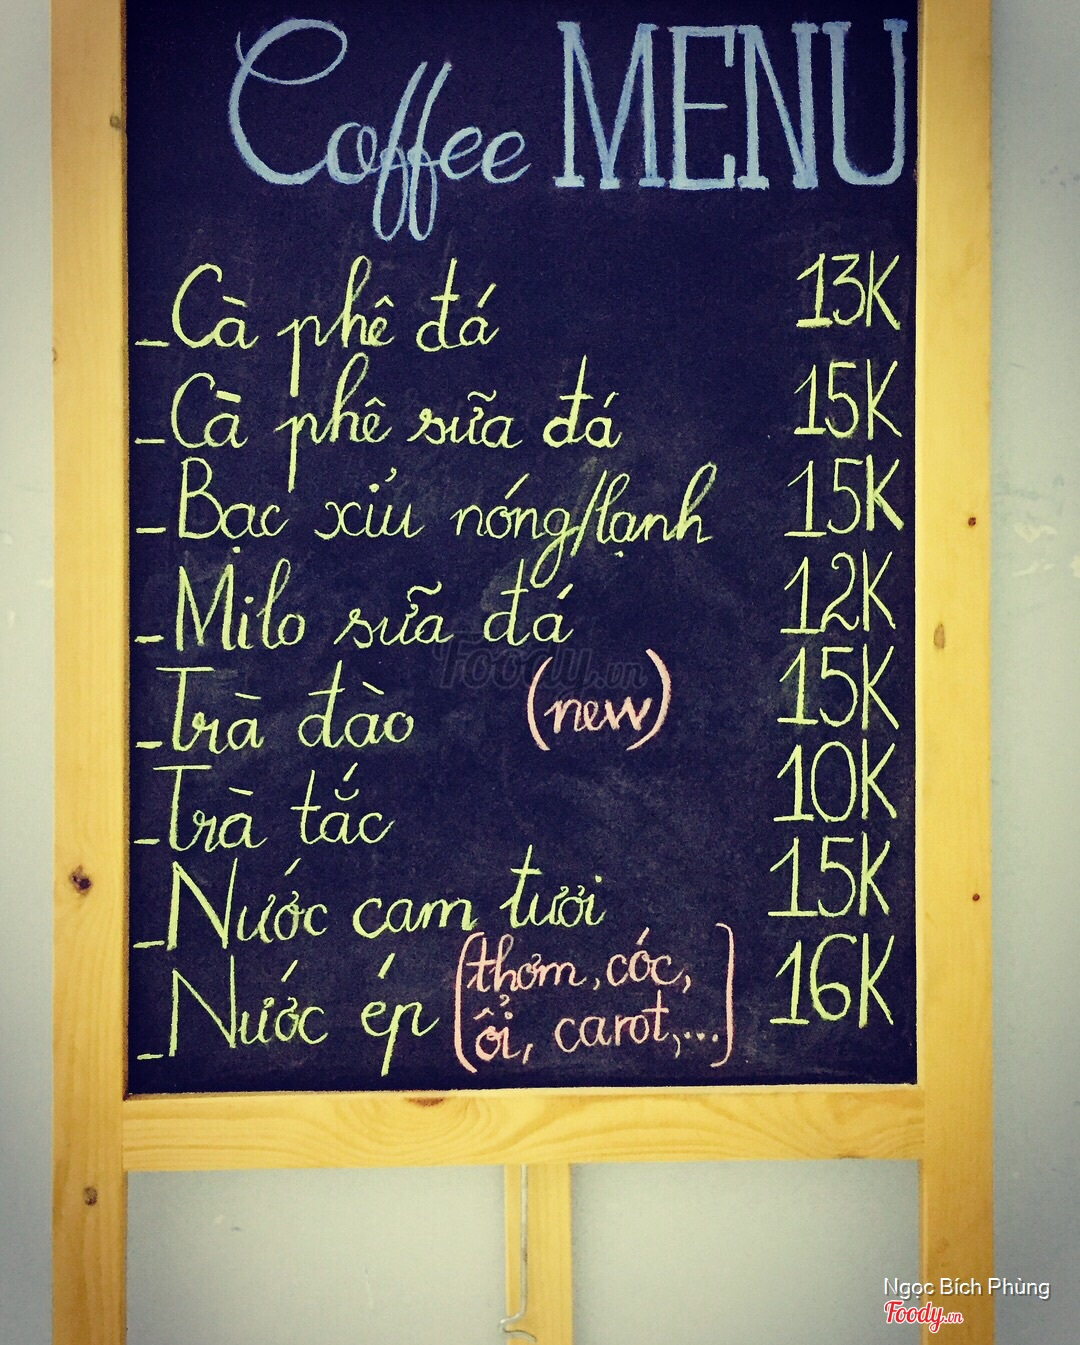 Coffee MENU
_Cà phê đá 13K
_Cà phê sữa đá 15K
_Bạc xỉu nóng/lạnh 15K
_Milo sữa đá 12K
Foody.vn
_Trà đào (new) 15K
_Trà tắc 10K
_Nước cam tươi 15K
_Nước ép (thơm, cóc, ổi, carot,...) 16K
Ngọc Bích Phùng
Foody.vn